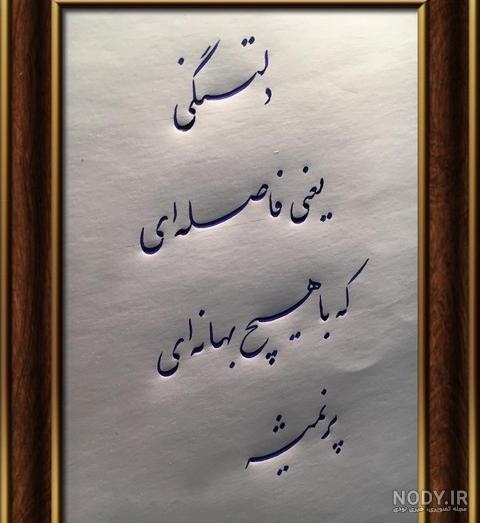 دلتنگی
یعنی فاصله‌ای
که با هیچ بهانه‌ای
پر نمیشه
NODY.IR
مجله تصویری، خبری نودی